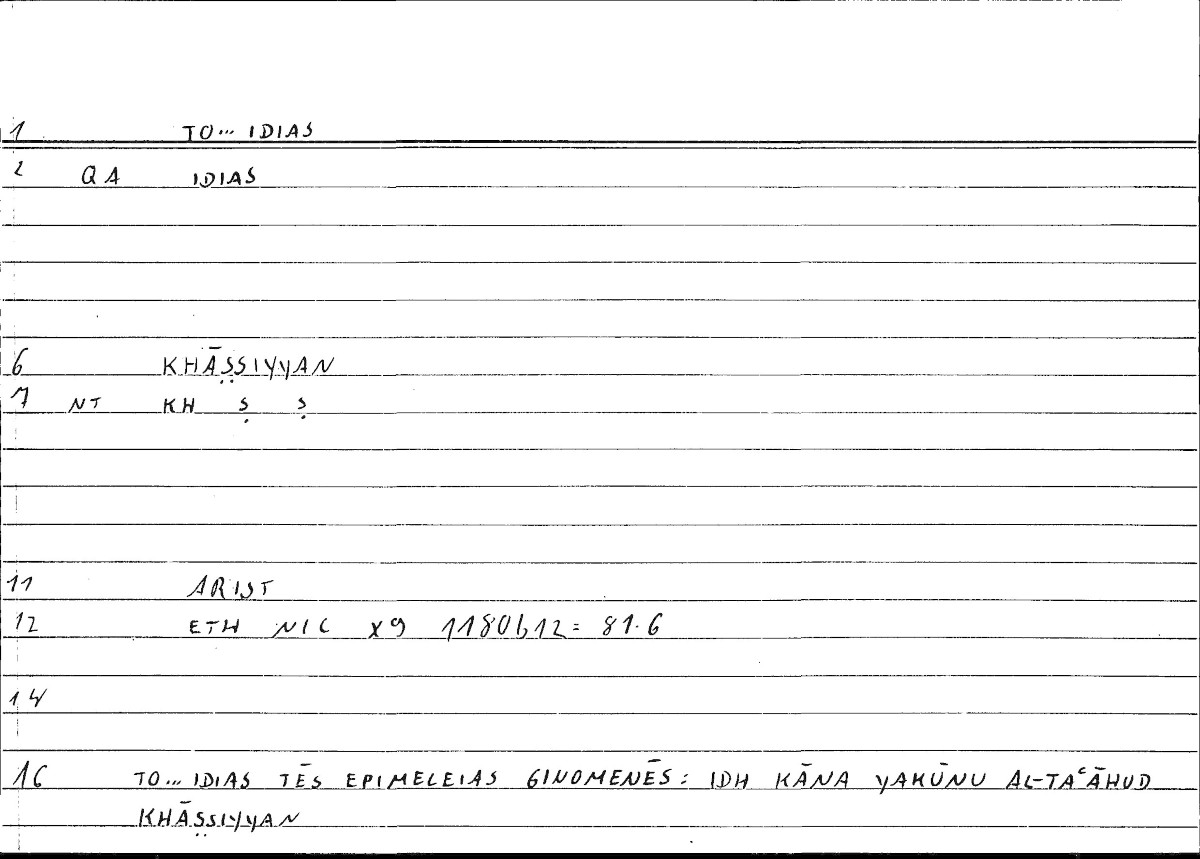 1 TO... IDIAS
2 QA IDIAS
6 KHĀṢṢIYYAN
7 NT KH Ṣ Ṣ
11 ARIST
12 ETH NIC X9 1180b12 = 81.6
14
16 TO... IDIAS TĒS EPIMELEIAS GINOMENĒS : IDH KĀNA YAKŪNU AL-TAʿĀHUD
KHĀṢṢIYYAN